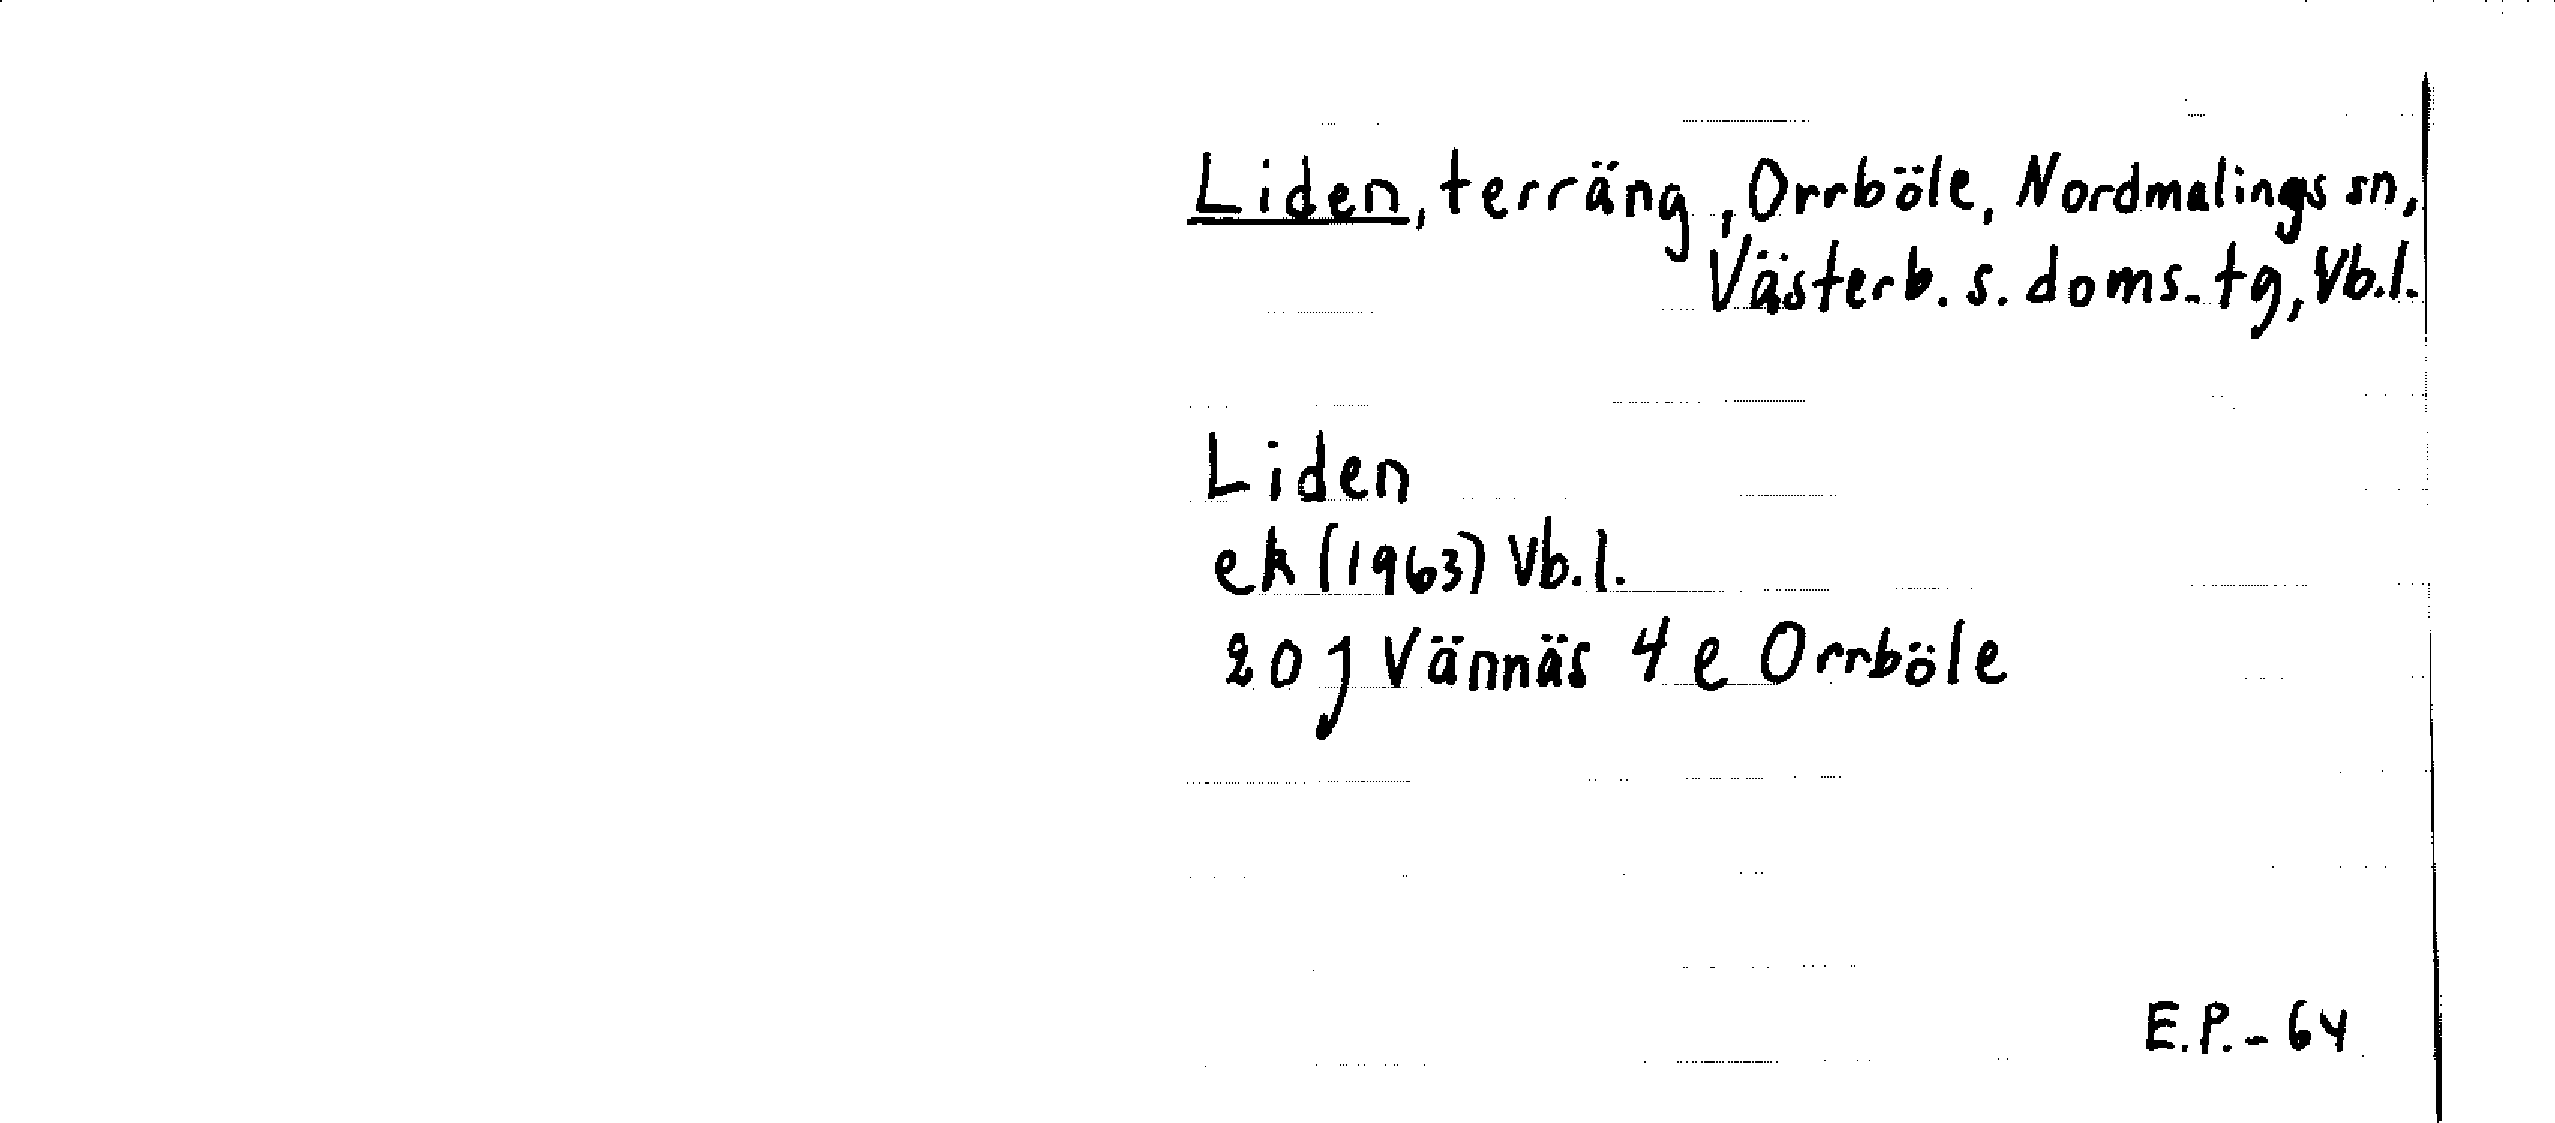 Liden, terräng, Orrböle, Nordmalings sn,
Västerb. s. doms. tg, Vb.l.
Liden
ek (1963) Vb.l.
20 J Vännäs 4 e Orrböle
E.P. - 64